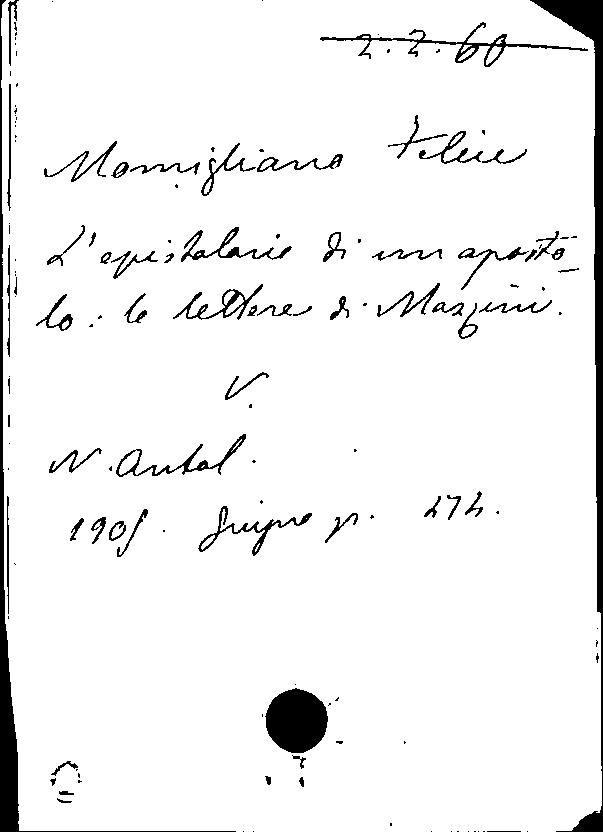 2.2.60
Momigliano Felice
L'epistolario di un aposto-
lo: le lettere di Mazzini.
V.
N. Antol.
1905. Giugno p. 474.